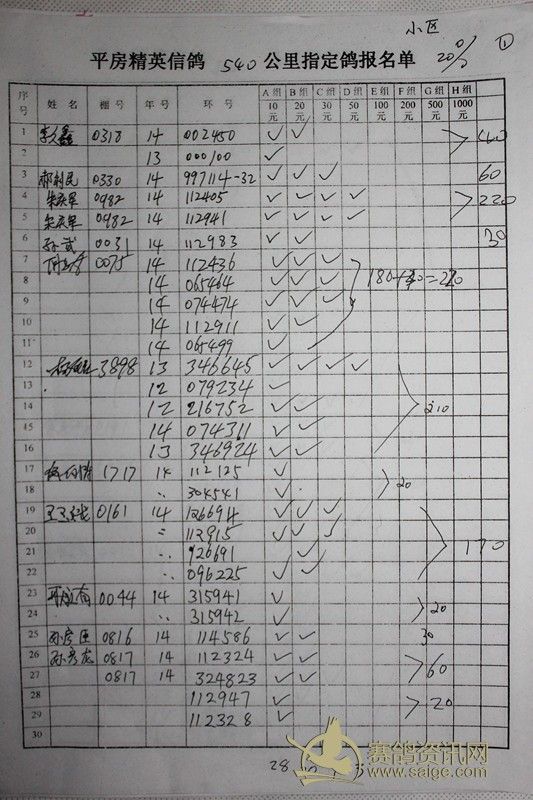 小区
平房精英信鸽 540 公里指定鸽报名单 20% ①
序号 姓名 棚号 年号 环号 A组10元 B组20元 C组30元 D组50元 E组100元 F组200元 G组500元 H组1000元
1 0318 14 002450 ✓ ✓
2 13 000100 ✓
3 郝利民 0330 14 997114-32 ✓ ✓ ✓ 60
4 0982 14 112405 ✓ ✓ ✓ ✓ 220
5 0982 14 112941 ✓ ✓ ✓ ✓
6 孙武 0031 14 112983 ✓ ✓ 30
7 0075 14 112436 ✓ ✓ ✓
8 14 065464 ✓ ✓ ✓
9 14 074474 ✓ ✓ ✓
10 14 112911 ✓ ✓
11 14 065499 ✓ ✓
12 3898 13 346645 ✓ ✓ ✓ ✓
13 12 079234 ✓
14 12 216752 ✓ ✓ 210
15 14 074311 ✓ ✓
16 13 346924 ✓ ✓
17 1717 14 112125 ✓
18 304541 ✓ 20
19 0161 14 126694 ✓ ✓ ✓
20 112915 ✓ ✓ ✓
21 926691 ✓ 170
22 096225 ✓ ✓
23 0044 14 315941 ✓
24 315942 ✓ 20
25 孙彦臣 0816 14 114586 ✓ ✓ 30
26 孙彦龙 0817 14 112324 ✓ ✓ 60
27 0817 14 324823 ✓ ✓
28 112947 ✓ 20
29 112328 ✓
30
28
赛鸽资讯网
www.saige.com